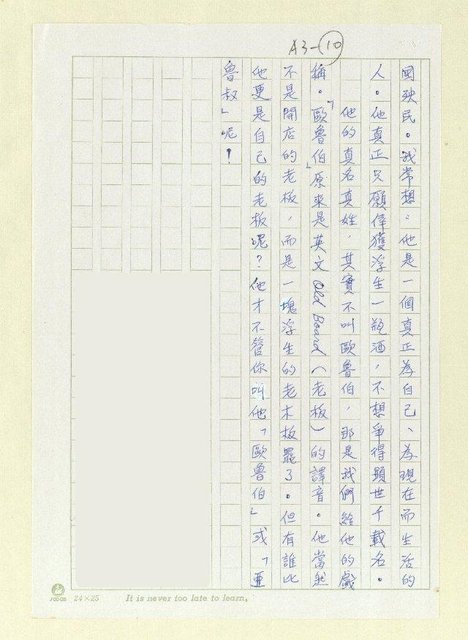 A3-10
國殃民。我常想:他是一個真正為自己、為現在而生活的
人。他真正只願偉獲浮生一瓶酒,不想爭得顯世千載名。
他的真名真姓,其實不叫歐魯伯,那是我們給他的戲
稱。「歐魯伯」原來是英文Old Board(老板)的譯音。他當然
不是開店的老板,而是一塊浮生的老木板罷了。但有誰比
他更是自己的老板呢?他才不管你叫他「歐魯伯」或「亞
魯叔」呢!
24×25
It is never too late to learn,